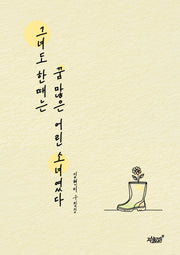 그녀도 한때는
꿈 많은 어린 소녀였다